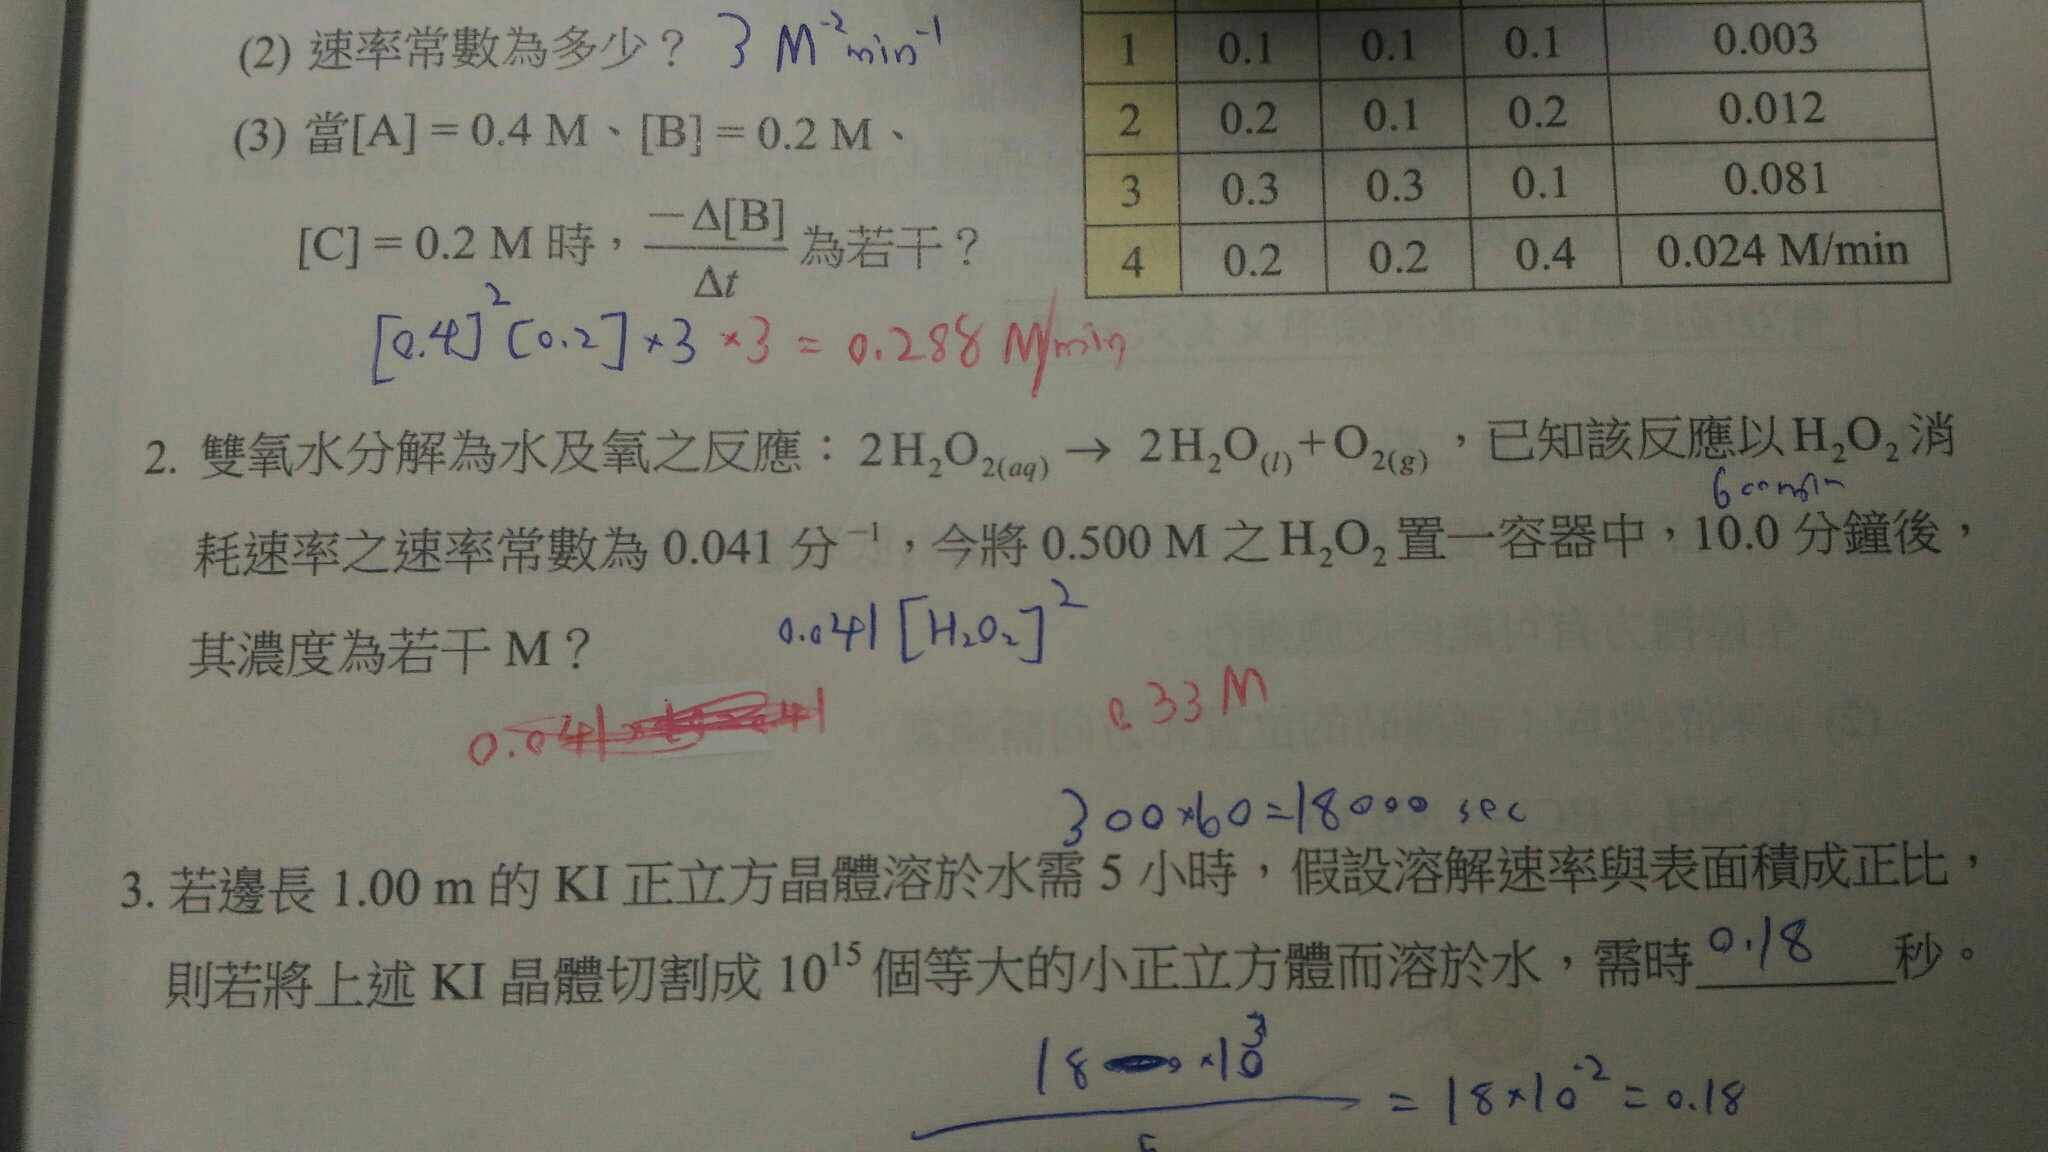 (2) 速率常數為多少？ 3 M⁻²min⁻¹
1 0.1 0.1 0.1 0.003
2 0.2 0.1 0.2 0.012
3 0.3 0.3 0.1 0.081
4 0.2 0.2 0.4 0.024 M/min
(3) 當[A] = 0.4 M、[B] = 0.2 M、
[C] = 0.2 M 時，−Δ[B]/Δt 為若干？
[0.4]² [0.2] × 3 × 3 = 0.288 M/min
2. 雙氧水分解為水及氧之反應：2H₂O₂(aq) → 2H₂O(l) + O₂(g)，已知該反應以 H₂O₂ 消
耗速率之速率常數為 0.041 分⁻¹，今將 0.500 M 之 H₂O₂ 置一容器中，10.0 分鐘後，
其濃度為若干 M？
0.041 [H₂O₂]²
0.33 M
300×60=18000 sec
3. 若邊長 1.00 m 的 KI 正立方晶體溶於水需 5 小時，假設溶解速率與表面積成正比，
則若將上述 KI 晶體切割成 10¹⁵ 個等大的小正立方體而溶於水，需時 0.18 秒。
18 ×10³
= 18×10⁻² = 0.18